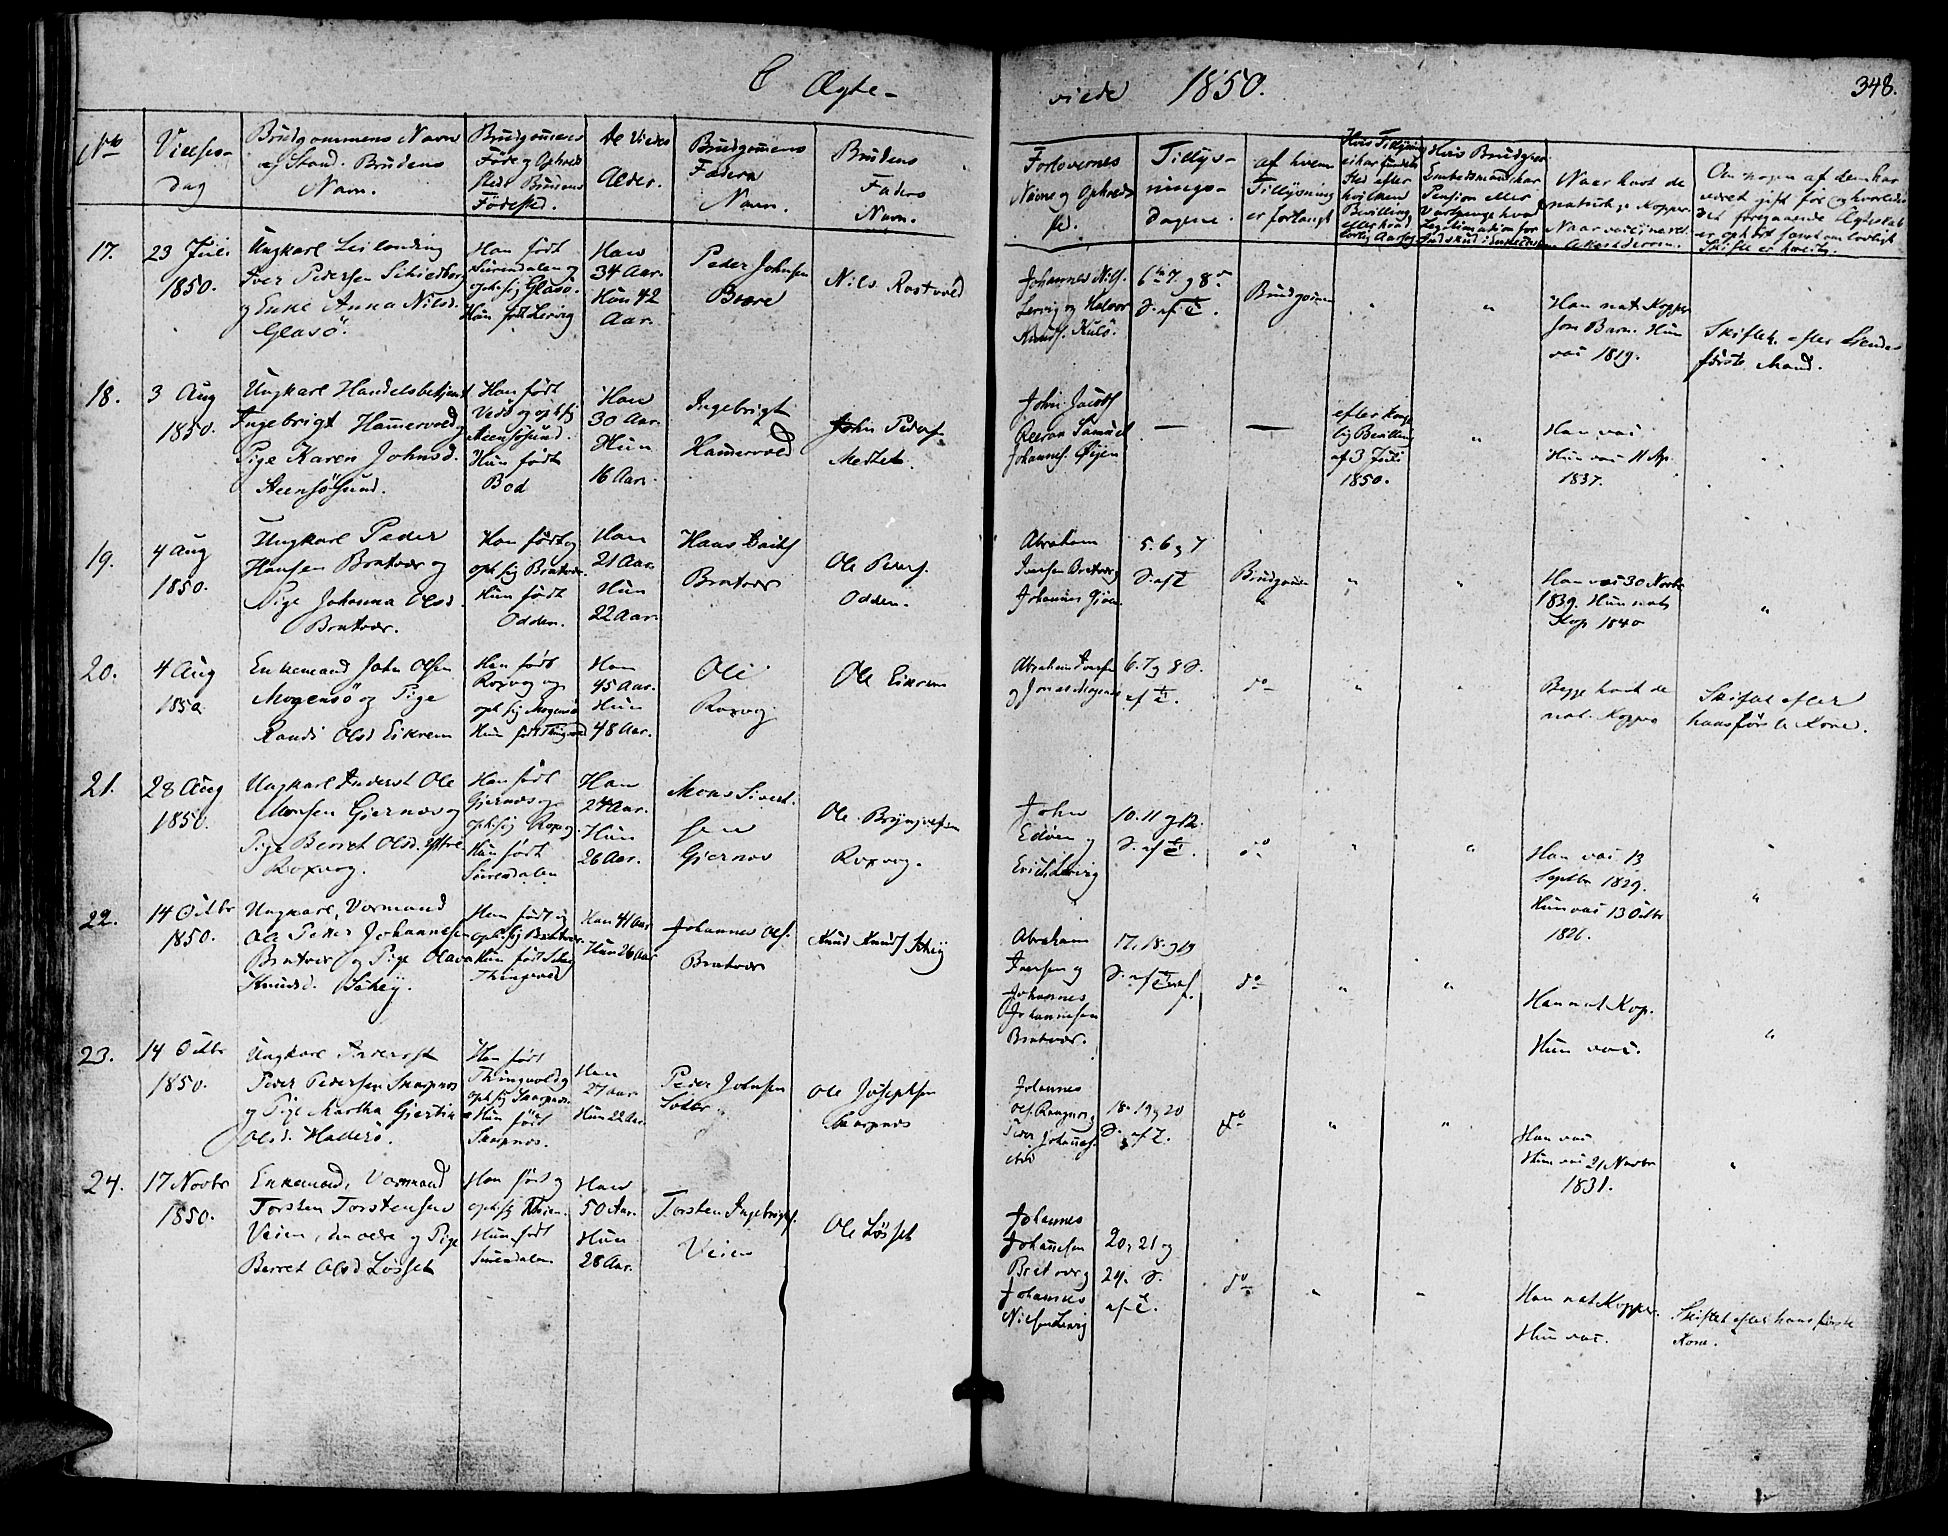 C Ægte-
viede 1850.
348.
No
Vielses-
dag
Brudgommens Navn
og Stand. Brudens
Navn.
Brudgomens
Føde og Ophold
sted. Brudens
Fødested.
De Viedes
Alder.
Brudgomens
Faders
Navn.
Brudens
Faders
Navn.
Forlovernes
Navne og Opholds
sted.
Tillys-
nings-
dagene.
af hvem
Tillysning
er forlangt
Hvis Tillysning
ei har fundet
Sted efter
hvilken
Bevilling
eller hvad
lovlig Aarsag
Hvis Brudgom
Embedsmand, har
Pension eller
Vartpenge hvad
Legitimation for
Indskud i Enkekassen
Naar havt de
naturlige Kopper
Naar vaccineret
Attesterer.
Om nogen af dem har
været gift før og hvorledes
det foregaaende Ægteskab
er ophørt samt om lovligt
Skifte er holdt.
17. 23 Juli
1850.
Ungkarl Leilending
Iver Pedersen
og Enke Anna Nilsd.
Glasø.
Han født
Surendalen og
oph. sig Glasø.
Hun født Lervig
Han
34 Aar.
Hun 42
Aar.
Peder Johnsen
Bøvre
Nils Rostvold
Johannes Nils.
Lervig og Halvor
Knuds. Kulø.
6te 7. og 8de
S. af T.
Brudgomen
"
"
Han nat. Kopper
som Barn. Hun
vac 1819.
Skiftet efter hendes
første Mand.
18. 3 Aug
1850.
Ungkarl Handelsbetjent
Ingebrigt Hamervold og
Pige Karen Johnsd.
Steensøsund.
Han født
Vedø og oph. sig
Steensøsund.
Hun født
Bod
Han
30 Aar.
Hun
16 Aar.
Ingebrigt
Hamervold
John Peders.
Mestet.
John Jacobs
Samuel
Johannes. Øien
—
—
efter konge
lig Bevilling
af 3 Juli
1850.
"
Han vac.
Hun vac 11 Ap.
1837.
"
19. 4 Aug
1850.
Ungkarl Peder
Hansen Bratvær og
Pige Johanna Olsd.
Bratvær.
Han født og
oph. sig Bratvær.
Hun født
Odden.
Han
21 Aar.
Hun
22 Aar.
Hans
Bratvær
Ole Peders.
Odden.
Abraham
Iversen Bratvær og
Johannes
5. 6 og 7
S. af T
Brudgomen
"
"
Han vac 30 Novbr
1839. Hun nat.
Kop 1840
"
20. 4 Aug
1850
Enkemand John Olsen
Mogensø og Pige
Randi Olsd Eikrem
Han født
Roxvog og
oph sig Mogensø
Hun født Tingvold
Han
45 Aar.
Hun
48 Aar.
Ole
Roxvog
Ole Eikrem
Abraham Iversen
og Jonas Mogensø
6. 7 og 8 S.
af T.
do
"
"
Begge havt de
nat. Kopper
Skiftet efter
hans første Kone.
21. 28 Aug
1850.
Ungkarl Inderst Ole
Monsen Gjernæs og
Pige Berret Olsd.
Roxvog.
Han født
Gjernæs og
oph. sig Roxvog.
Hun født
Surendalen
Han
24 Aar.
Hun
26 Aar.
Mons Sivert-
sen
Gjernæs
Ole Brynjolfsen
Roxvog.
John
Edøen og
Erich Lervig
10. 11 og 12.
S. af T.
do
"
"
Han vac 13
Septbr 1829.
Hun vac 13 Octbr
1826.
"
22. 14 Octbr
1850.
Ungkarl, Vormand
Ole Peder Johannesen
Bratvær og Pige Olava
Knudsd. Schey.
Han født og
oph. sig Bratvær.
Hun født Schey
Thingvold
Han 41 Aar
Hun 26 Aar
Johannes Ols.
Bratvær
Knud Knuds Schey
Abraham
Iversen og
Johannes
Johannesen
Bratvær.
17, 18. og 19
S. af T.
do
"
"
Han nat Kop.
Hun vac.
"
23. 14 Octbr
1850.
Ungkarl Inderst
Peder Pedersen Skarpnæs
og Pige Martha Gjertine
Olsd.
Han født
Thingvold og
oph. sig Skarpnæs.
Hun født
Skarpnæs.
Han
27 Aar
Hun 22 Aar.
Peder Johnsen
Ole Josephsen
Skarpnæs
Johannes
Ols.
Peder Johannes.
18. 19 og 20
S. af T.
do
"
"
Han vac
Hun vac 21 Novbr
1831.
"
24. 17 Novbr
1850.
Enkemand, Vormand
Torsten Torstensen
Veien, den ældre og Pige
Berret Olsd Løsset
Han født og
oph. sig Veien.
Hun født
Surendalen
Han
50 Aar.
Hun
28 Aar.
Torsten Ingebrigts.
Veien
Ole Løsset
Johannes
Johannesen
Bratvær og
Johannes
Nilsen Lervig
20, 21 og
24. S.
af T.
do
"
"
Han nat Kopper.
Hun vac.
Skiftet efter hans første
Kone.